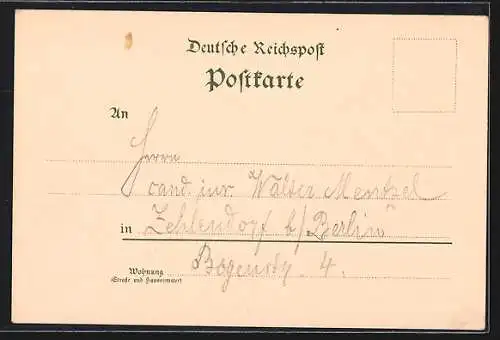 Deutsche Reichspost
Postkarte
An
Herrn
cand. jur. Walter Mentzel
in Zehlendorf b/Berlin
Wohnung Bogenstr. 4.
(Straße und Hausnummer)